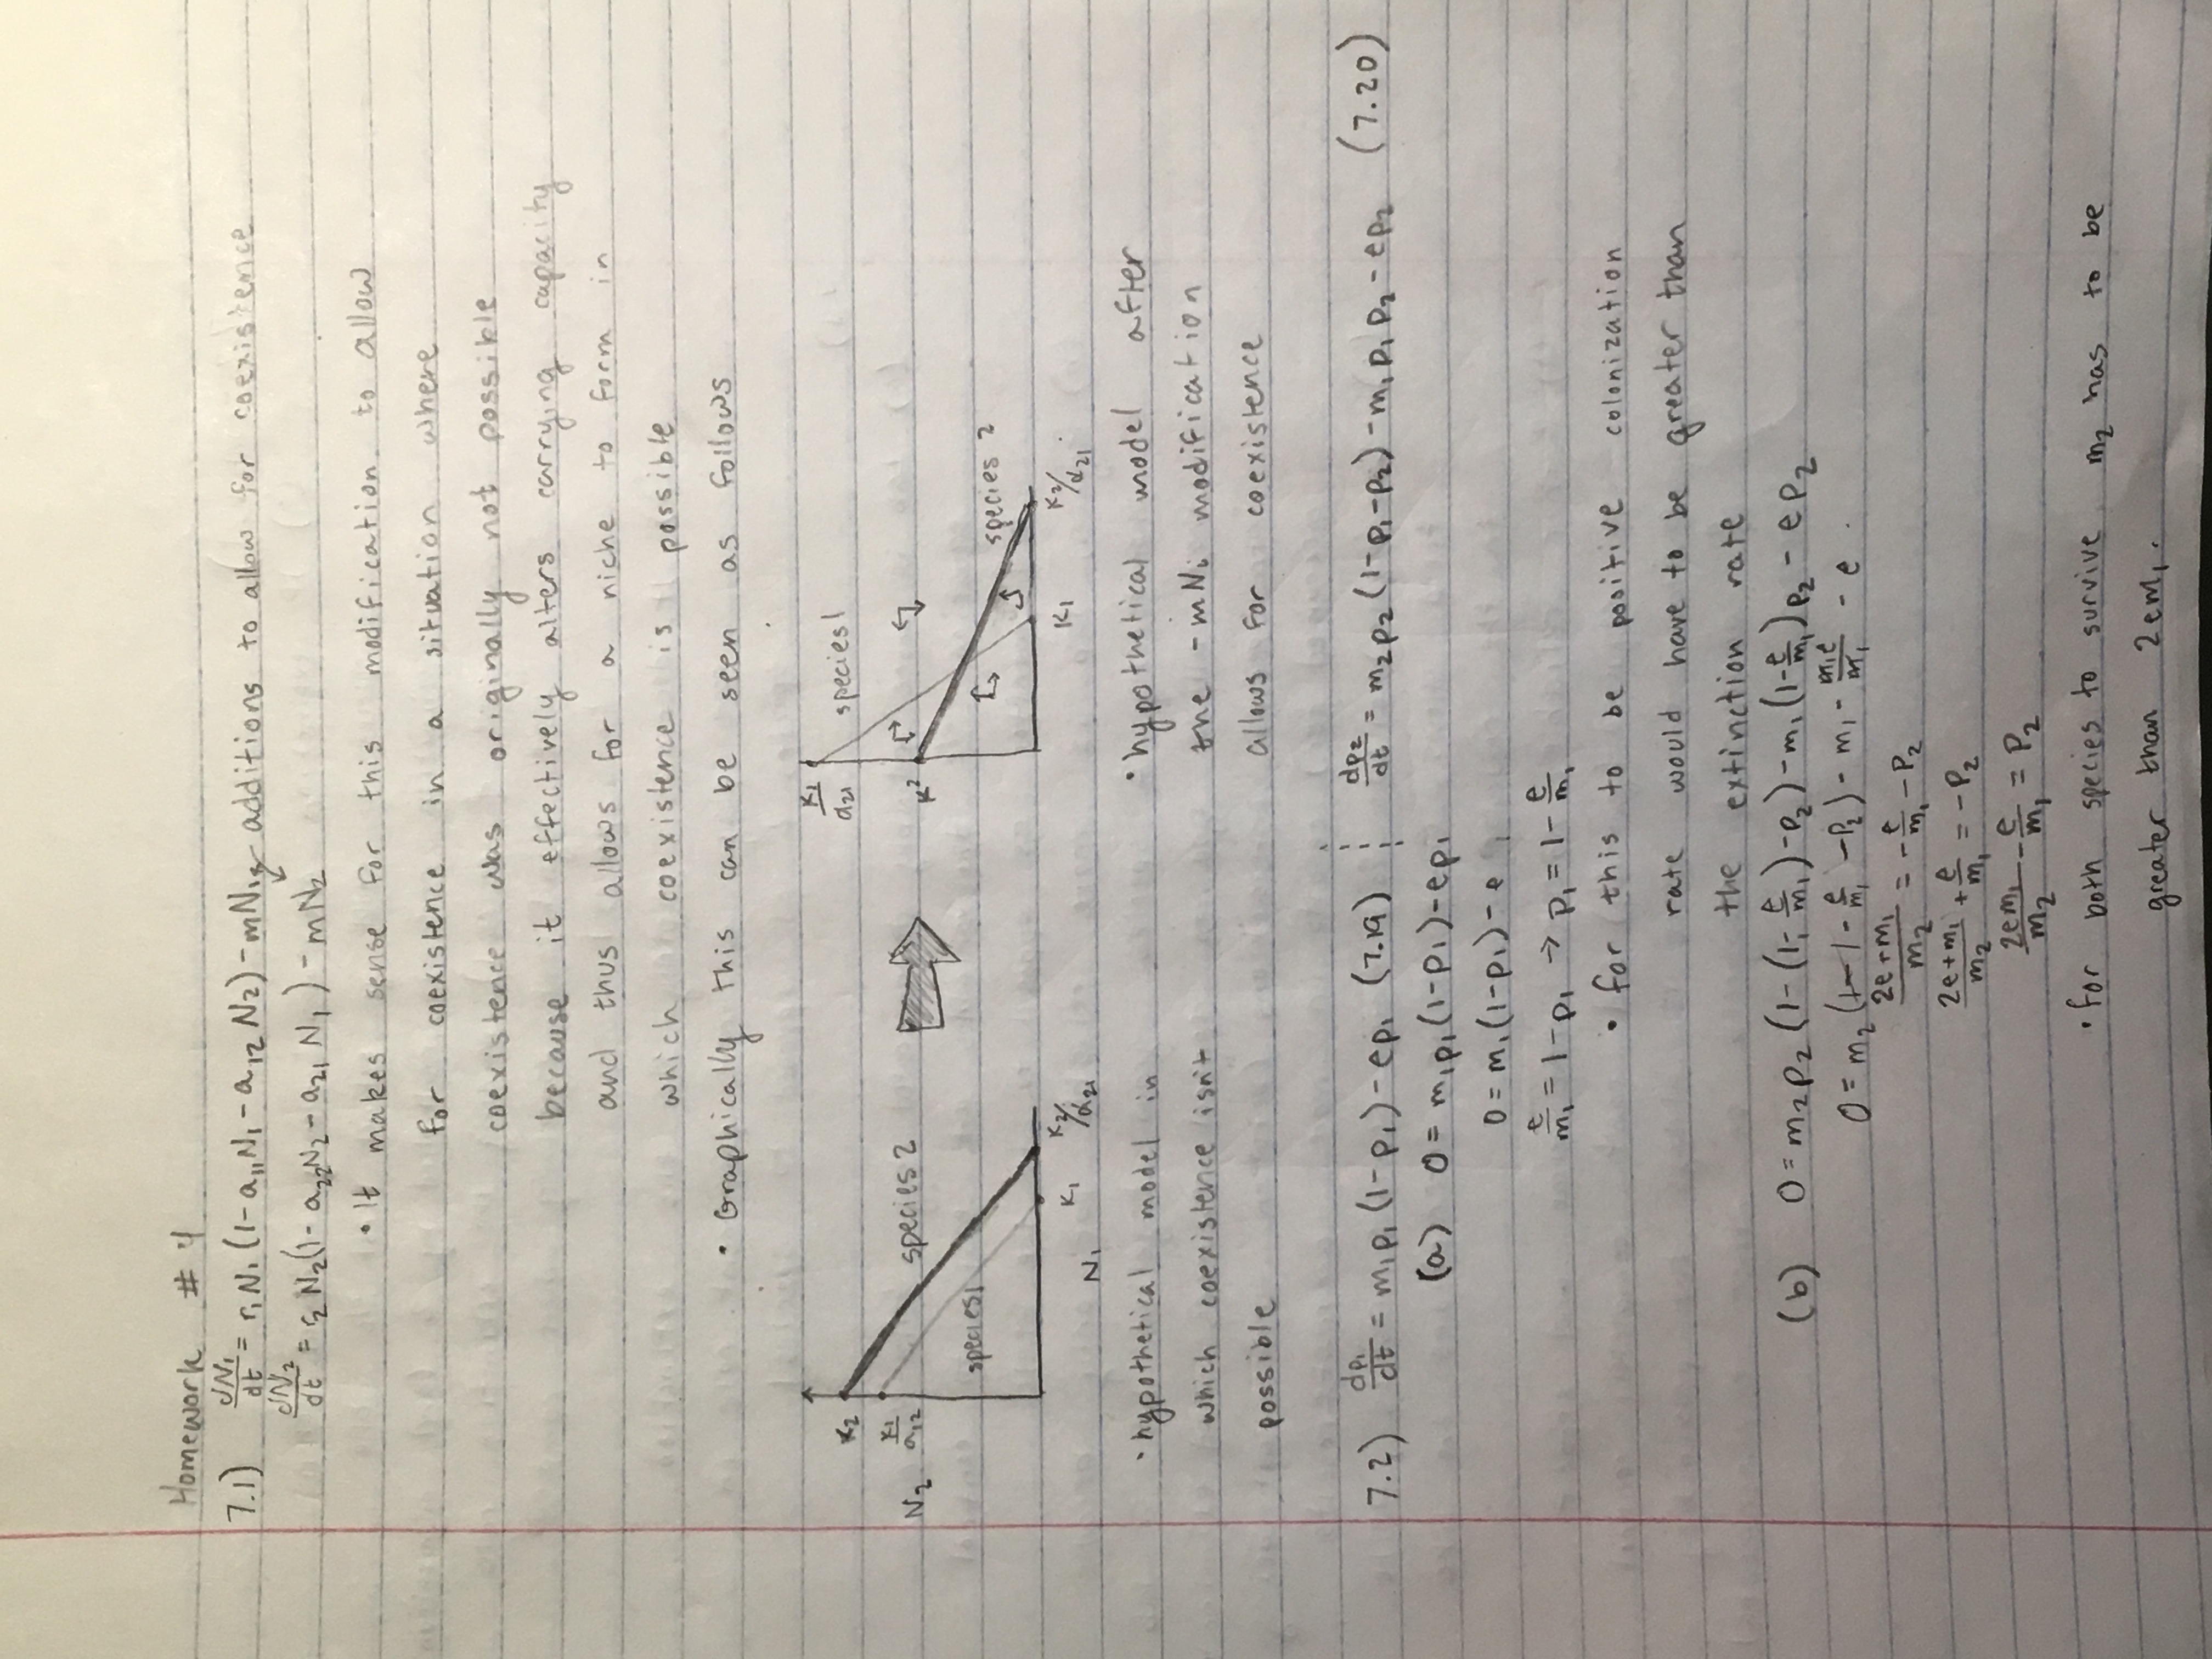 Homework # 4
7.1) dN₁/dt = r₁N₁(1-a₁₁N₁-a₁₂N₂)-mN₁ additions to allow for coexistence
dN₂/dt = r₂N₂(1-a₂₂N₂-a₂₁N₁)-mN₂
• It makes sense for this modification to allow
for coexistence in a situation where
coexistence was originally not possible
because it effectively alters carrying capacity
and thus allows for a niche to form in
which coexistence is possible
• Graphically this can be seen as follows
K₂
K₁/a₁₂
N₂
species 2
species 1
K₁
K₂/α₂₁
N₁
K₁/α₂₁
species 1
K²
species 2
K₁
K₂/α₂₁
• hypothetical model in
which coexistence isn't
possible
• hypothetical model after
the -mNi modification
allows for coexistence
7.2) dp₁/dt = m₁p₁(1-p₁)-ep₁ (7.19) dp₂/dt = m₂p₂(1-p₁-p₂)-m₁p₁p₂-ep₂ (7.20)
(a) 0 = m₁p₁(1-p₁)-ep₁
0 = m₁(1-p₁)-e
e/m₁ = 1-p₁ → p₁ = 1-e/m₁
• for this to be positive colonization
rate would have to be greater than
the extinction rate
(b) 0 = m₂p₂(1-(1-e/m₁)-p₂)-m₁(1-e/m₁)p₂-ep₂
0 = m₂(1-1-e/m₁-p₂)-m₁-m₁e/m₁-e
2e+m₁/m₂ = -e/m₁-p₂
2e+m₁/m₂+e/m₁ = -p₂
2em₁/m₂-e/m₁ = p₂
• for both species to survive m₂ has to be
greater than 2em₁.